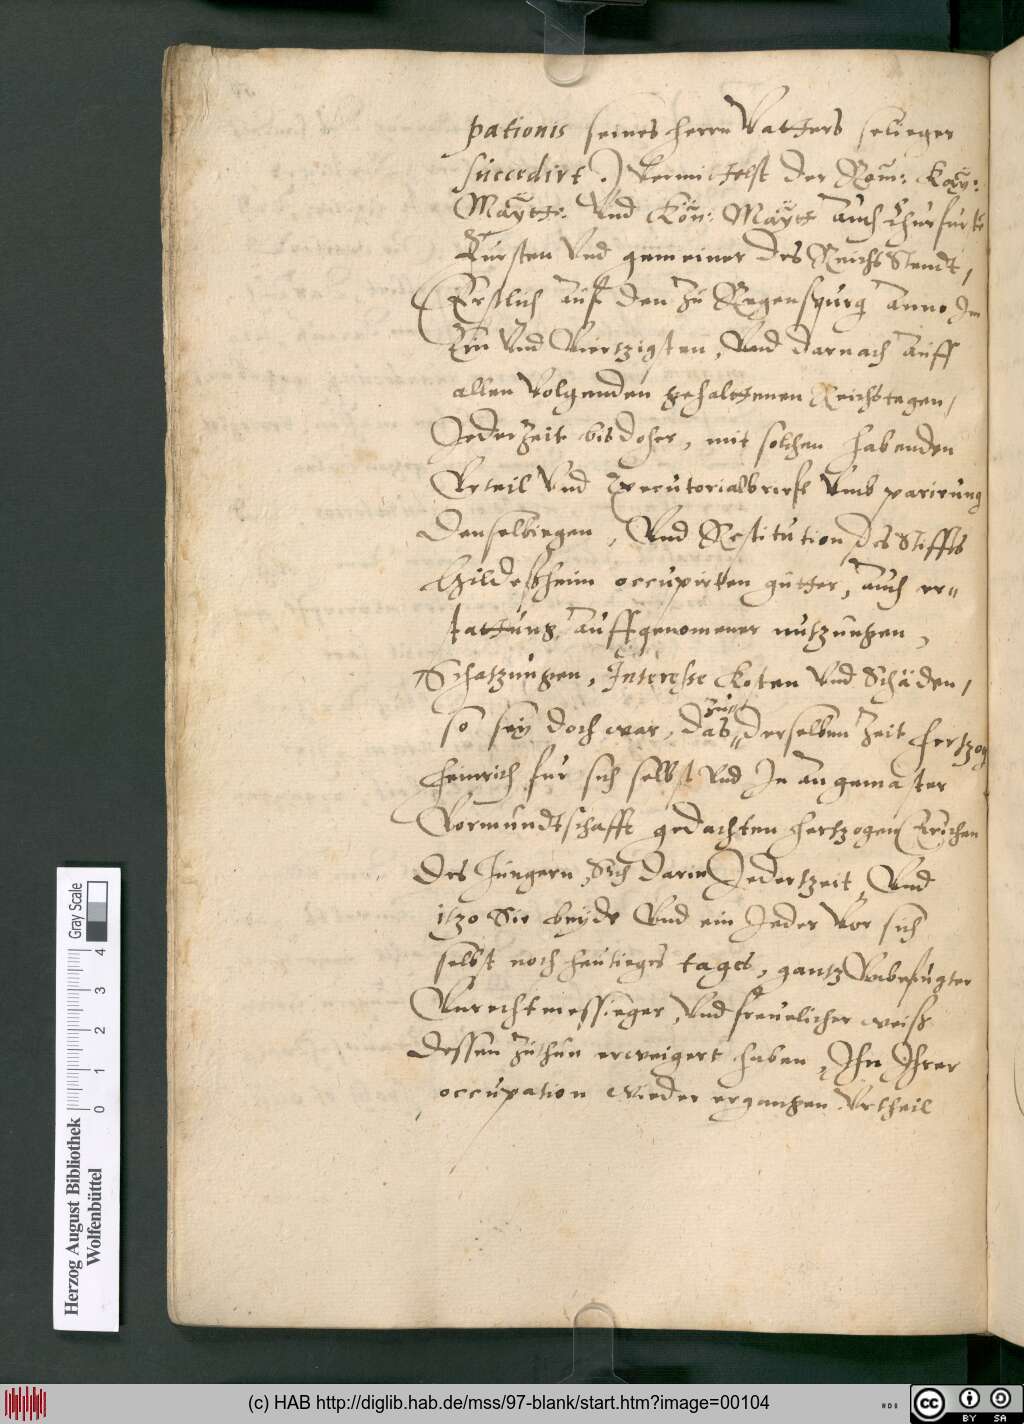 pationis seines herrn Vatters selieger
succedirt.) Vermittelst der Röm: Kay:
Maytt: Vnd Kön: Maytt auch Churfurst
Fürsten Vnd gemeiner des Reichs Stendt,
Erstlich Auf den Zu Regenspurg Anno Im
Ein Vnd Viertzigsten, Vnd darnach Auff
allen Volgenden gehalttenen Reichstagen,
Jederzeit bis doher, mit solchen habenden
Vrteil Vnd Executorialbrieff Vmb parirung
denselbiegen, Vnd Restitution des Stiffts
Hildesheim occupirten gütter, auch er-
stattung Auffgenomener nutzungen,
Schatzungen, Interesse Kosten Vnd Schäden,
so sey doch war, das zur derselben Zeit Hertzog
Heinrich für sich selbst Vnd In Angemaster
Vormundtschafft gedachten Hertzogen Erichen
des Jüngern, Sich darin Jedertzeit, Vnd
itzo Sie beyde Vnd ein Jeder Vor sich
selbst noch heutieges tages, gantz Vnbefugter
Vnrechtmessieger, Vnd freuelicher weiß
dessen Zuthun erweigert haben, Ihn Ihrer
occupation wieder ergangen Vrtheil
Herzog August Bibliothek
Wolfenbüttel
0 1 2 3 4
Gray Scale
(c) HAB http://diglib.hab.de/mss/97-blank/start.htm?image=00104
cc BY SA